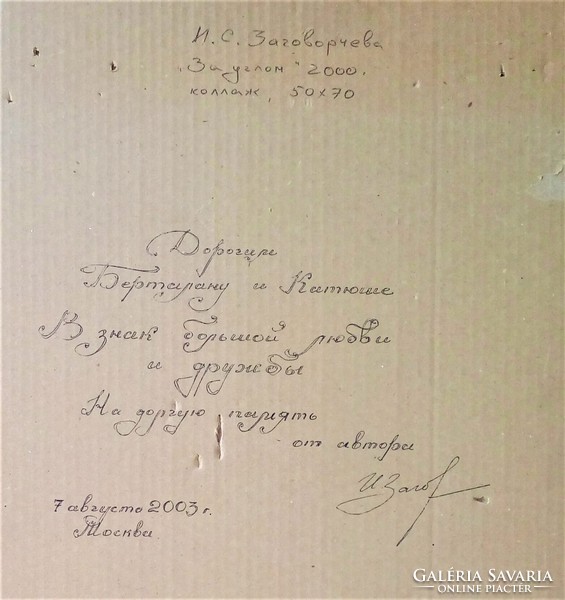 И. С. Заговорчева
"За углом" 2000.
коллаж, 50x70
Дорогим
Берталану и Катюше
В знак большой любви
и дружбы
На доргую память
от автора
ИЗагов
7 августа 2003 г.
Москва
GALÉRIA SAVARIA
ONLINE PIACTÉR